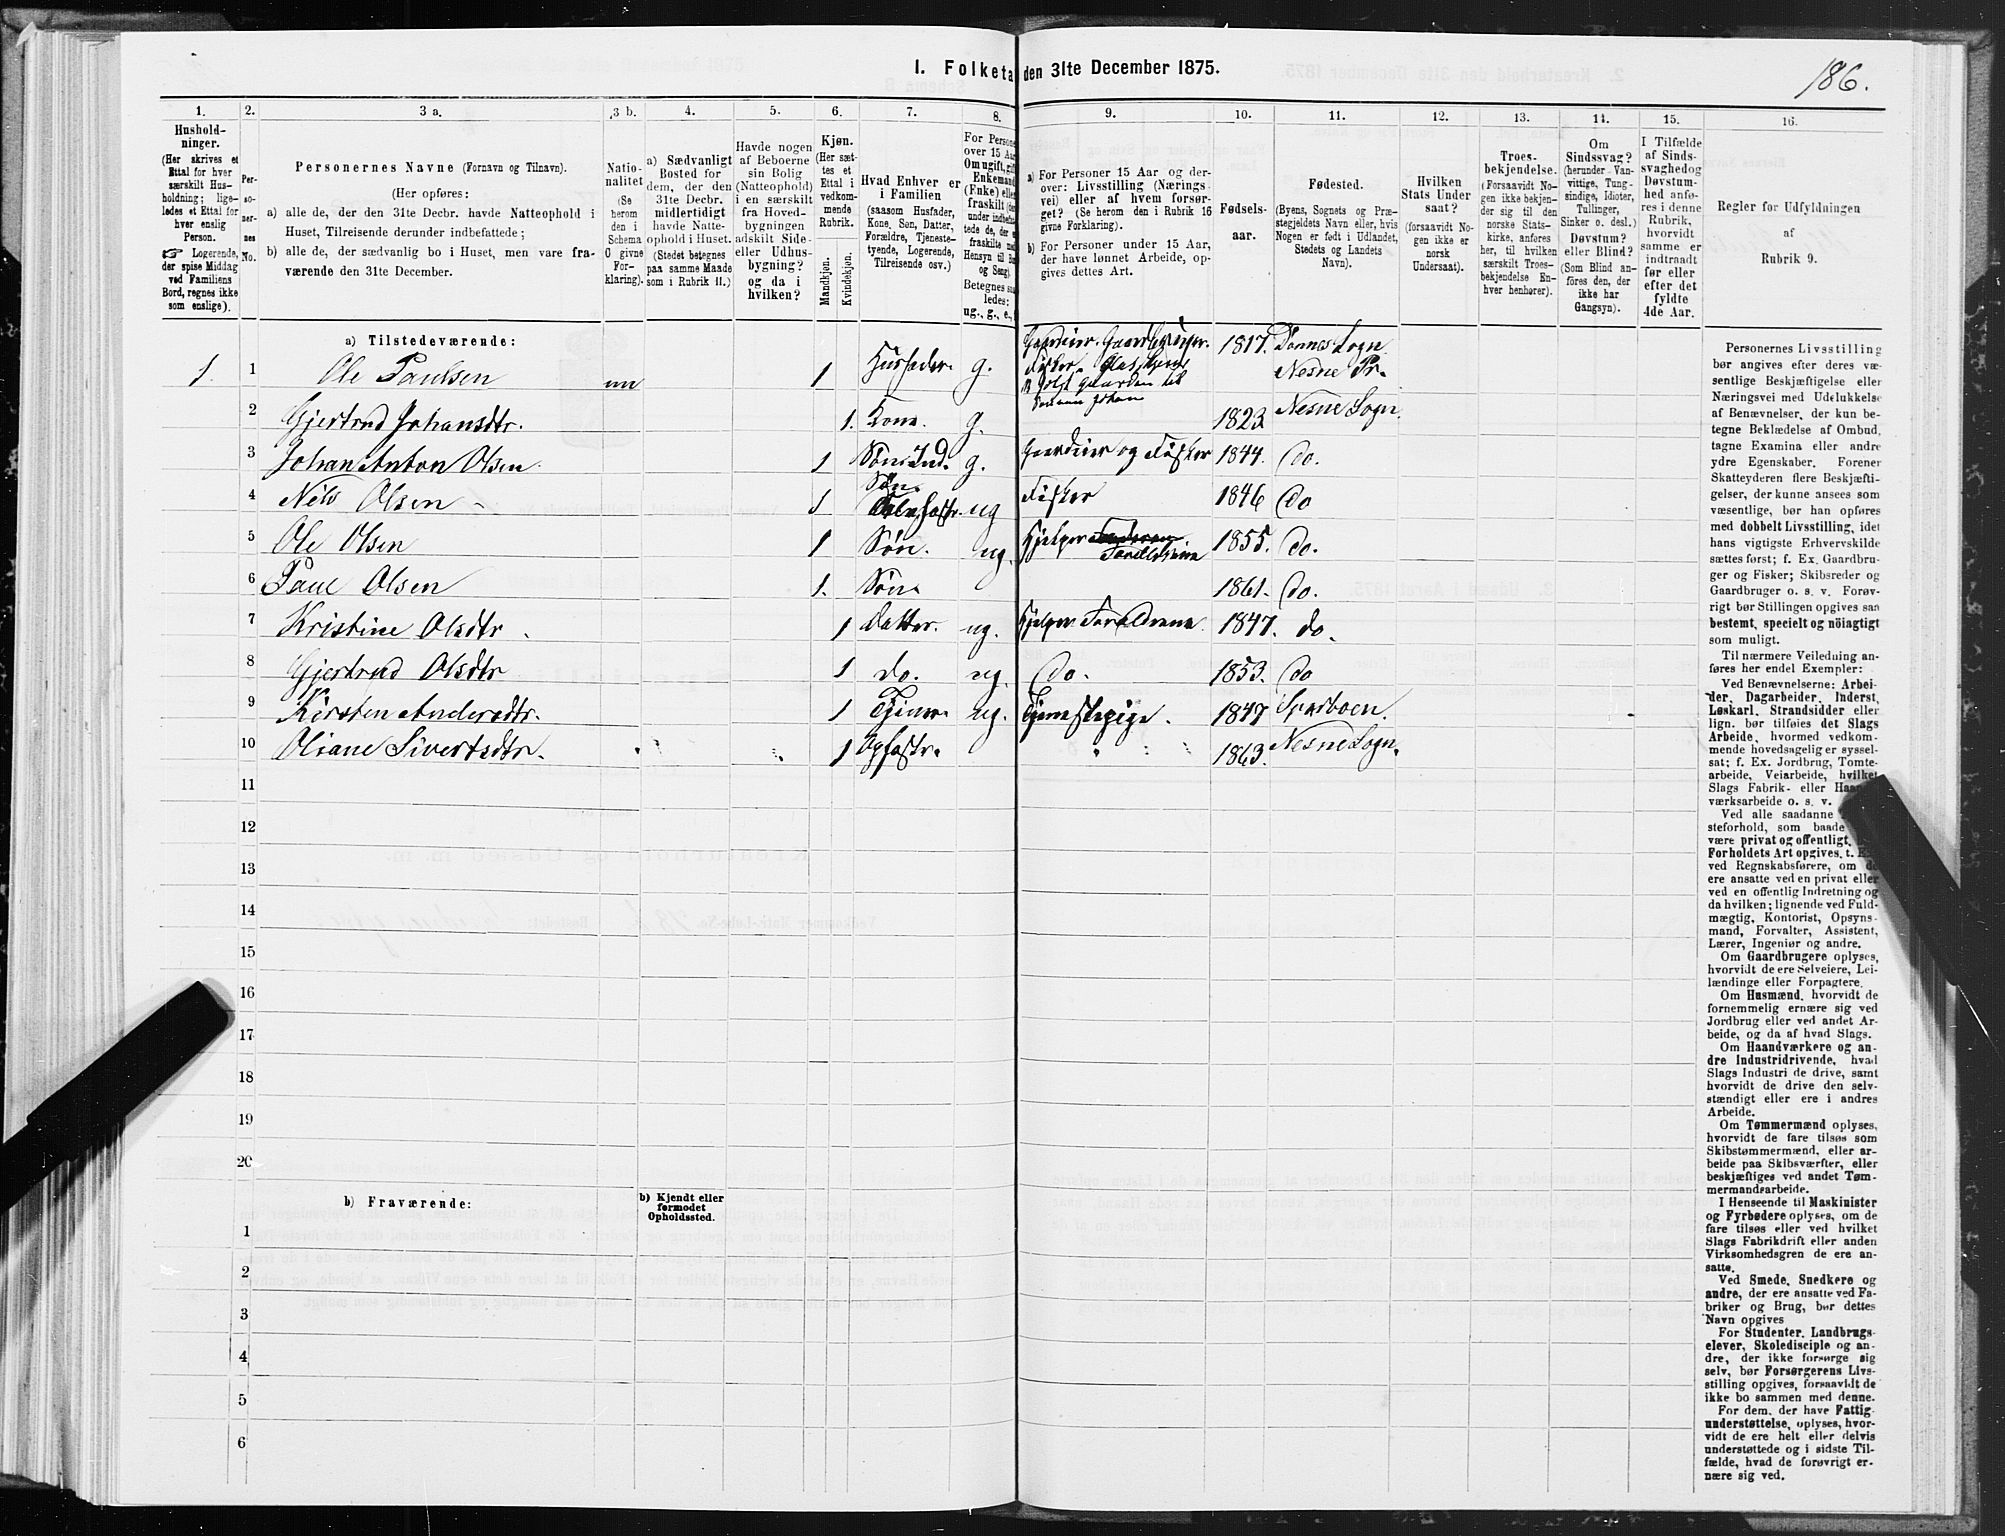 I. Folketa den 31te December 1875.
186.
1. 2. 3 a. 3 b. 4. 5. 6. 7. 8. 9. 10. 11. 12. 13. 14. 15. 16.
Hushold-
ninger.
(Her skrives et
Ettal for hver
særskilt Hus-
holdning; lige-
ledes et Ettal for
hver enslig
Person.
☞ Logerende,
der spise Middag
ved Familiens
Bord, regnes ikke
som enslige).
Per-
so-
ner-
nes
No.
Personernes Navne (Fornavn og Tilnavn).
(Her opføres:
a) alle de, der den 31te Decbr. havde Natteophold i
Huset, Tilreisende derunder indbefattede;
b) alle de, der sædvanlig bo i Huset, men vare fra-
værende den 31te December.
Natio-
nalitet
(Se
herom
den i
Schema
C givne
For-
klaring).
a) Sædvanligt
Bosted for
dem, der den
31te Decbr.
midlertidigt
havde Natte-
ophold i Huset.
(Stedet betegnes
paa samme Maade
som i Rubrik 11.)
Havde nogen
af Beboerne
sin Bolig
(Natteophold)
i en særskilt
fra Hoved-
bygningen
adskilt Side-
eller Udhus-
bygning?
og da i
hvilken?
Kjøn.
(Her sæt-
tes et
Ettal i
vedkom-
mende
Rubrik.
Mandkjøn.
Kvindekjøn.
Hvad Enhver er
i Familien
(saasom Husfader,
Kone, Søn, Datter,
Forældre, Tjeneste-
tyende, Logerende,
Tilreisende osv.)
For Persone
over 15 Aar
Om ugift, gift
Enkemand
(Enke) elle
fraskilt (der
under indbefat-
tede de, der e
fraskilte med
Hensyn til Bo
og Seng).
Betegnes saa
ledes:
ug., g., e.,
a) For Personer 15 Aar og der-
over: Livsstilling (Nærings-
vei) eller af hvem forsør-
get? (Se herom den i Rubrik 16
givne Forklaring).
b) For Personer under 15 Aar,
der have lønnet Arbeide, op-
gives dettes Art.
Fødsels-
aar.
Fødested.
(Byens, Sognets og Præ-
stegjeldets Navn eller, hvis
Nogen er født i Udlandet,
Stedets og Landets
Navn).
Hvilken
Stats Under
saat?
(forsaavidt No-
gen ikke er
norsk
Undersaat).
Troes-
bekjendelse.
(Forsaavidt No-
gen ikke bekjen-
der sig til den
norske Stats-
kirke, anføres
her, til hvilken
særskilt Troes-
bekjendelse En-
hver henhører).
Om
Sindssvag?
(herunder Van-
vittige, Tung-
sindige, Idioter,
Tullinger,
Sinker o. desl.)
Døvstum?
eller Blind?
(Som Blind an-
føres den, der
ikke har
Gangsyn).
I Tilfælde
af Sinds-
svaghed og
Døvstum-
hed anfø-
res i denne
Rubrik,
hvorvidt
samme er
indtraadt
før eller
efter det
fyldte
4de Aar.
Regler for Udfyldningen
af
Rubrik 9.
a) Tilstedeværende:
1. 1 Ole Paulsen nn 1 Husfader g. Gaardeier. Gaardbruger. Fisker. 1817. Dønnes Sogn Nesne Pr.
2 Gjertrud Johansdtr. 1. Kone. g. 1823 Nesne Sogn
3 Johan Anton Olsen 1 Søn g. Gaardeier og Fisker 1844. do.
4 Nils Olsen 1 Søn ug Fisker 1846 do
5 Ole Olsen 1 Søn. ug. Hjelper 1855. do.
6 Paul Olsen 1. Søn 1861. do.
7 Kristine Olsdtr. 1 Datter. ug. Hjelper Foreldrene 1847. do.
8 Gjertrud Olsdtr 1 do. ug. do. 1853. do
9 Kirsten Andersdtr. 1 Tjener ug. Tjenestepige. 1847
10 Oliane Sivertsdtr. 1 Opfostr. 1863. Nesne Sogn.
11
12
13
14
15
16
17
18
19
20
b) Fraværende:
b) Kjendt eller
formodet
Opholdssted.
1
2
3
4
5
6
Personernes Livsstilling
bør angives efter deres væ-
sentlige Beskjæftigelse eller
Næringsvei med Udelukkelse
af Benævnelser, der kun be-
tegne Beklædelse af Ombud,
tagne Examina eller andre
ydre Egenskaber. Forener
Skatteyderen flere Beskjæfti-
gelser, der kunne ansees som
væsentlige, bør han opføres
med dobbelt Livsstilling, idet
hans vigtigste Erhvervskilde
sættes først; f. Ex. Gaardbru-
ger og Fisker; Skibsreder og
Gaardbruger o. s. v. Forøv-
rigt bør Stillingen opgives saa
bestemt, specielt og nöiagtigt
som muligt.
Til nærmere Veiledning an-
føres her endel Exempler:
Ved Benævnelserne: Arbei-
der, Dagarbeider, Inderst,
Løskarl, Strandsidder eller
lign. bør tilføies det Slags
Arbeide, hvormed vedkom-
mende hovedsagelig er syssel-
sat; f. Ex. Jordbrug, Tomte-
arbeide, Veiarbeide, hvilket
Slags Fabrik- eller Haand
værksarbeide o. s. v.
Ved alle saadanne
steforhold, som baade
være privat og offentligt,
Forholdets Art opgives, t. Ex
ved Regnskabsførere, om de
ere ansatte ved en privat eller
ved en offentlig Indretning og
da hvilken; lignende ved Fuld-
mægtig, Kontorist, Opsyns-
mand, Forvalter, Assistent,
Lærer, Ingeniør og andre.
Om Gaardbrugere oplyses,
hvorvidt de ere Selveiere, Lei-
lændinge eller Forpagtere.
Om Husmænd, hvorvidt de
fornemmelig ernære sig ved
Jordbrug eller ved andet Ar-
beide, og da af hvad Slags.
Om Haandværkere og an-
dre Industridrivende, hvad
Slags Industri de drive, samt
hvorvidt de drive den selv-
stændigt eller ere i andres
Arbeide.
Om Tømmermænd oplyses,
hvorvidt de fare tilsøs som
Skibstømmermænd, eller ar-
beide paa Skibsværfter, eller
beskjæftiges ved andet Tøm-
mermandsarbeide.
I Henseende til Maskinister
og Fyrbødere oplyses, om de
fare tilsøs eller ved hvilket
Slags Fabrikdrift eller anden
Virksomhedsgren de ere an-
satte.
Ved Smede, Snedkere og
andre, der ere ansatte ved Fa-
briker og Brug, bør dettes
Navn opgives
For Studenter, Landbrugs-
elever, Skoledisciple og an-
dre, der ikke forsørge sig
selv, bør Forsørgerens Livs-
stilling opgives, forsaavidt de
ikke bo sammen med denne.
For dem, der have Fattig-
understøttelse, oplyses, hvor-
vidt de ere helt eller delvis
understøttede og i sidste Til-
fælde, hvad de forøvrigt er-
nære sig ved.